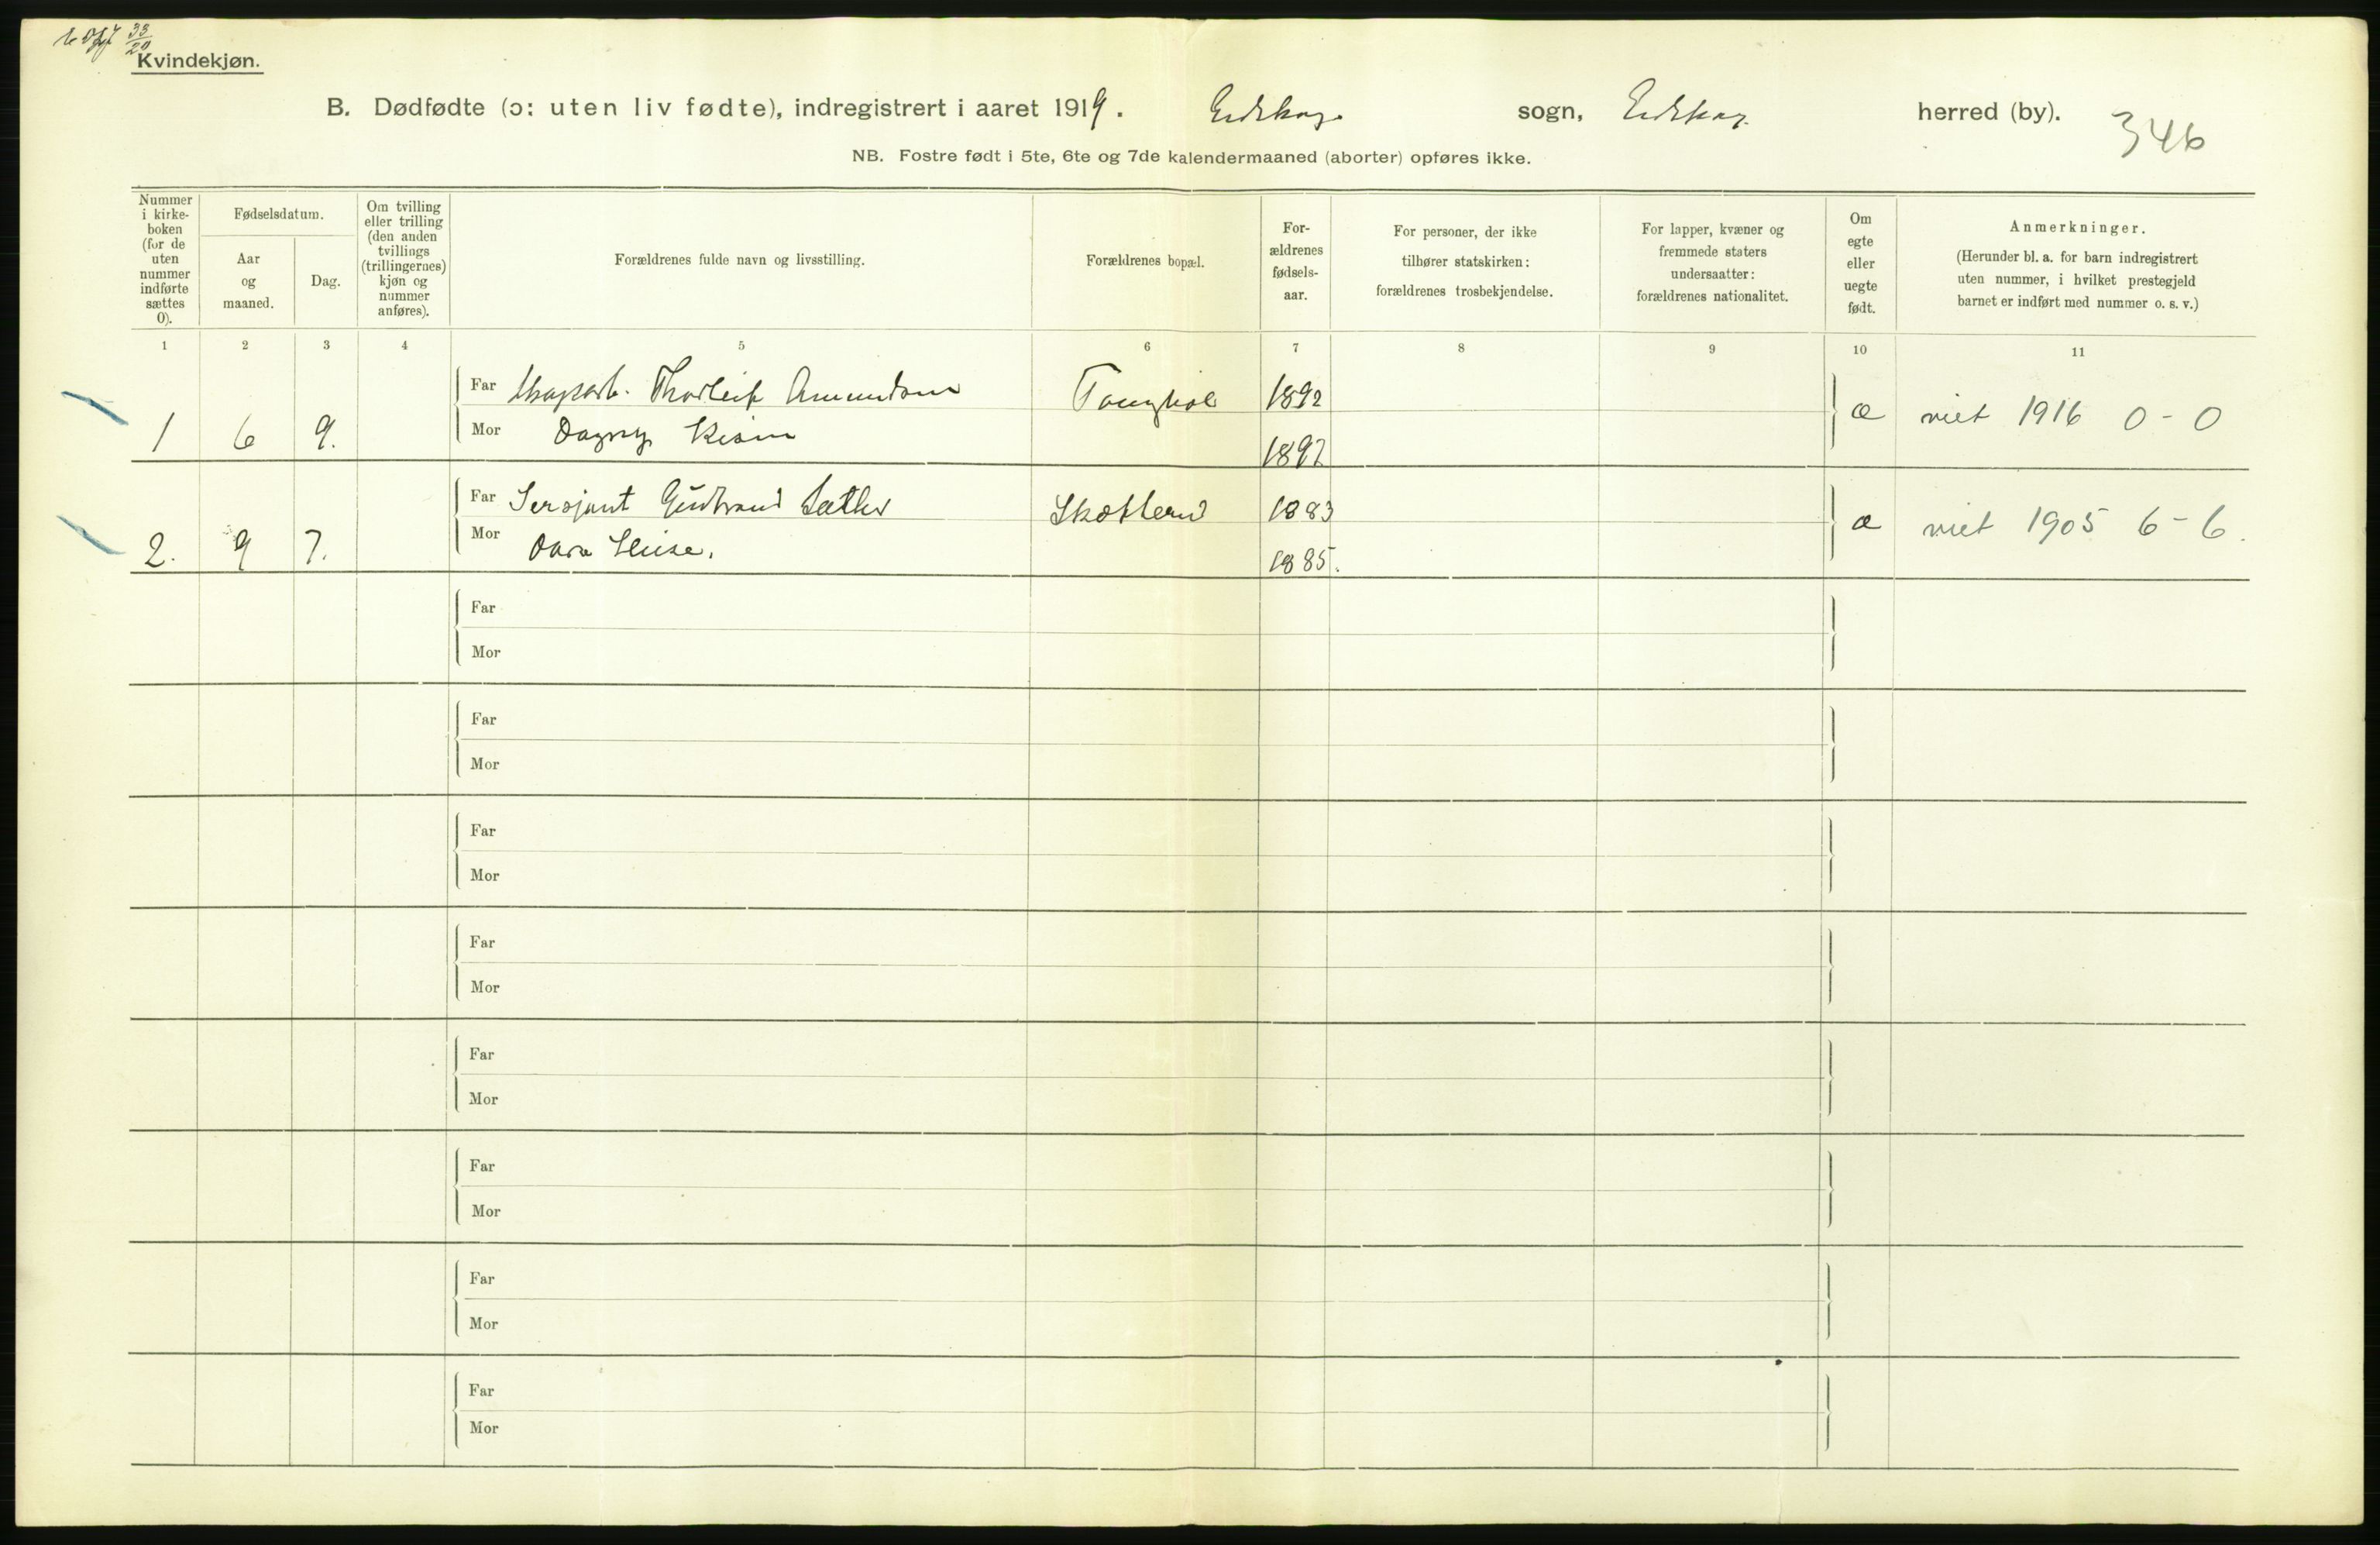 33
20
Kvindekjøn.
B. Dødfødte (ɔ: uten liv fødte), indregistrert i aaret 1919. Eidskog sogn, Eidskog herred (by).
346
NB. Fostre født i 5te, 6te og 7de kalendermaaned (aborter) opføres ikke.
Nummer
i kirke-
boken
(for de
uten
nummer
indførte
sættes
0).
Fødselsdatum.
Aar
og
maaned.
Dag.
Om tvilling
eller trilling
(den anden
tvillings
(trillingernes)
kjøn og
nummer
anføres).
Forældrenes fulde navn og livsstilling.
Forældrenes bopæl.
For-
ældrenes
fødsels-
aar.
For personer, der ikke
tilhører statskirken:
forældrenes trosbekjendelse.
For lapper, kvæner og
fremmede staters
undersaatter:
forældrenes nationalitet.
Om
egte
eller
uegte
født.
Anmerkninger.
(Herunder bl. a. for barn indregistrert
uten nummer, i hvilket prestegjeld
barnet er indført med nummer o. s. v.)
1 2 3 4 5 6 7 8 9 10 11
Far Thorleif Amundsen 1892
1 6 9. Mor Dagny 1897 æ viet 1916 0 - 0
Far Sersjant Gudbrand Sæther 1883
2. 9 7. Mor 1885. æ viet 1905 6 - 6.
Far
Mor
Far
Mor
Far
Mor
Far
Mor
Far
Mor
Far
Mor
Far
Mor
Far
Mor